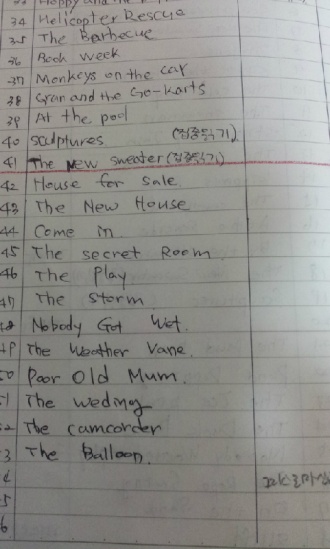 34 Helicopter Rescue
35 The Barbecue
36 Book Week
37 Monkeys on the car
38 Gran and the Go-karts
39 At the pool
40 sculptures (집중듣기)
41 The New sweater (집중듣기)
42 House for sale
43 The New House
44 Come in
45 The secret Room
46 The Play
47 The storm
48 Nobody Got Wet.
49 The Weather Vane
50 Poor Old Mum.
51 The weding
52 The camcorder
53 The Balloon.